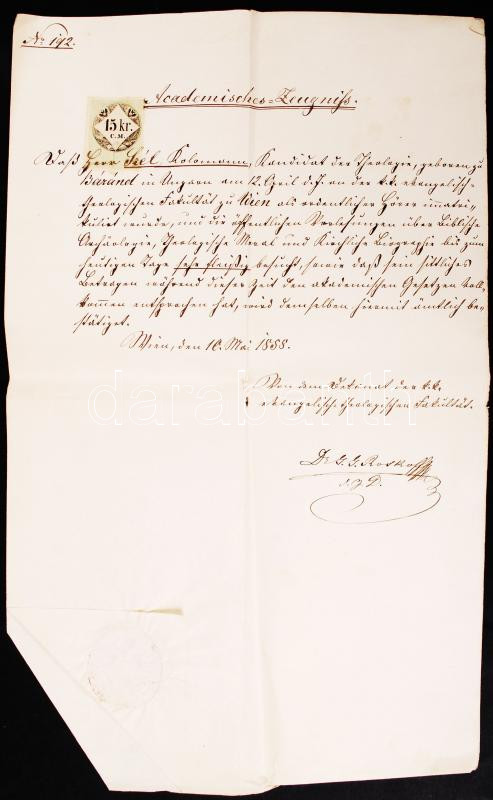 No 192.
Academisches-Zeugniß.
15 kr.
C.M.
Daß Herr Szél Kolomann, Kandidat der Theologie, geboren zu
Báránd in Ungarn am 12. April d. J. an der k.k. evangelisch-
theologischen Fakultät zu Wien als ordentlicher Hörer imatri-
kulirt wurde, und die öffentlichen Vorlesungen über Biblische
Archäologie, Theologische Moral und Kirchliche Biographie bis zum
heutigen Tage sehr fleißig besucht, sowie daß sein sittliches
Betragen während dieser Zeit den akademischen Gesetzen voll-
kommen entsprochen hat, wird demselben hiermit ämtlich be-
stätiget.
Wien, den 10. Mai 1858.
Von dem Dekanat der k.k.
evangelisch-theologischen Fakultät.
Dr. G. G. Roskoff
d. z. D.
darabanth